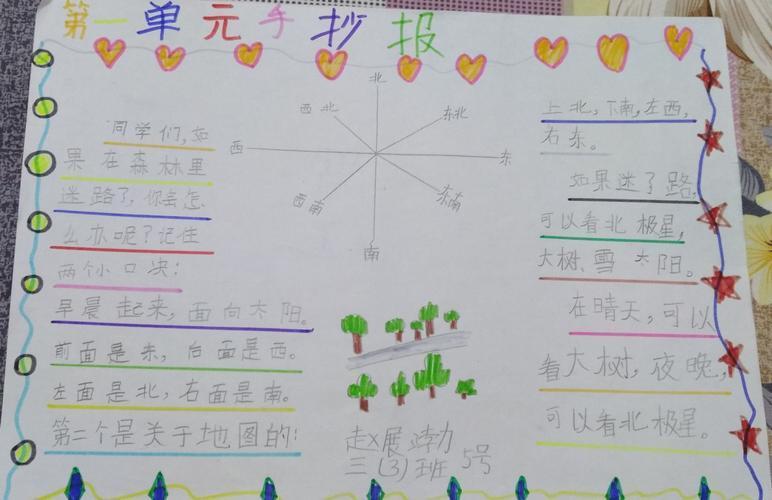 第一单元手抄报
同学们,如
果在森林里
迷路了,你会怎
么办呢?记住
两个小口决:
早晨起来,面向太阳。
前面是东,后面是西。
左面是北,右面是南。
第二个是关于地图的:
北
西北
东北
西
东
西南
东南
南
上北,下南,左西,
右东。
如果迷了路,
可以看北极星,
大树、雪、太阳。
在晴天,可以
看大树,夜晚,
可以看北极星。
三(3)班 5号